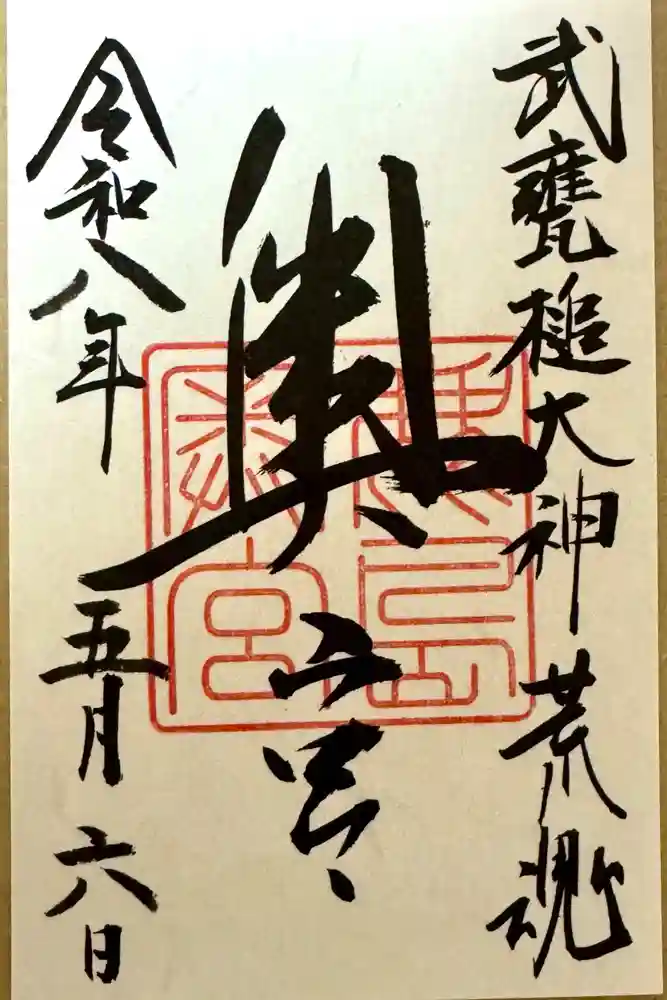 武甕槌大神荒魂
奥宮
鹿島奥宮
令和八年五月六日